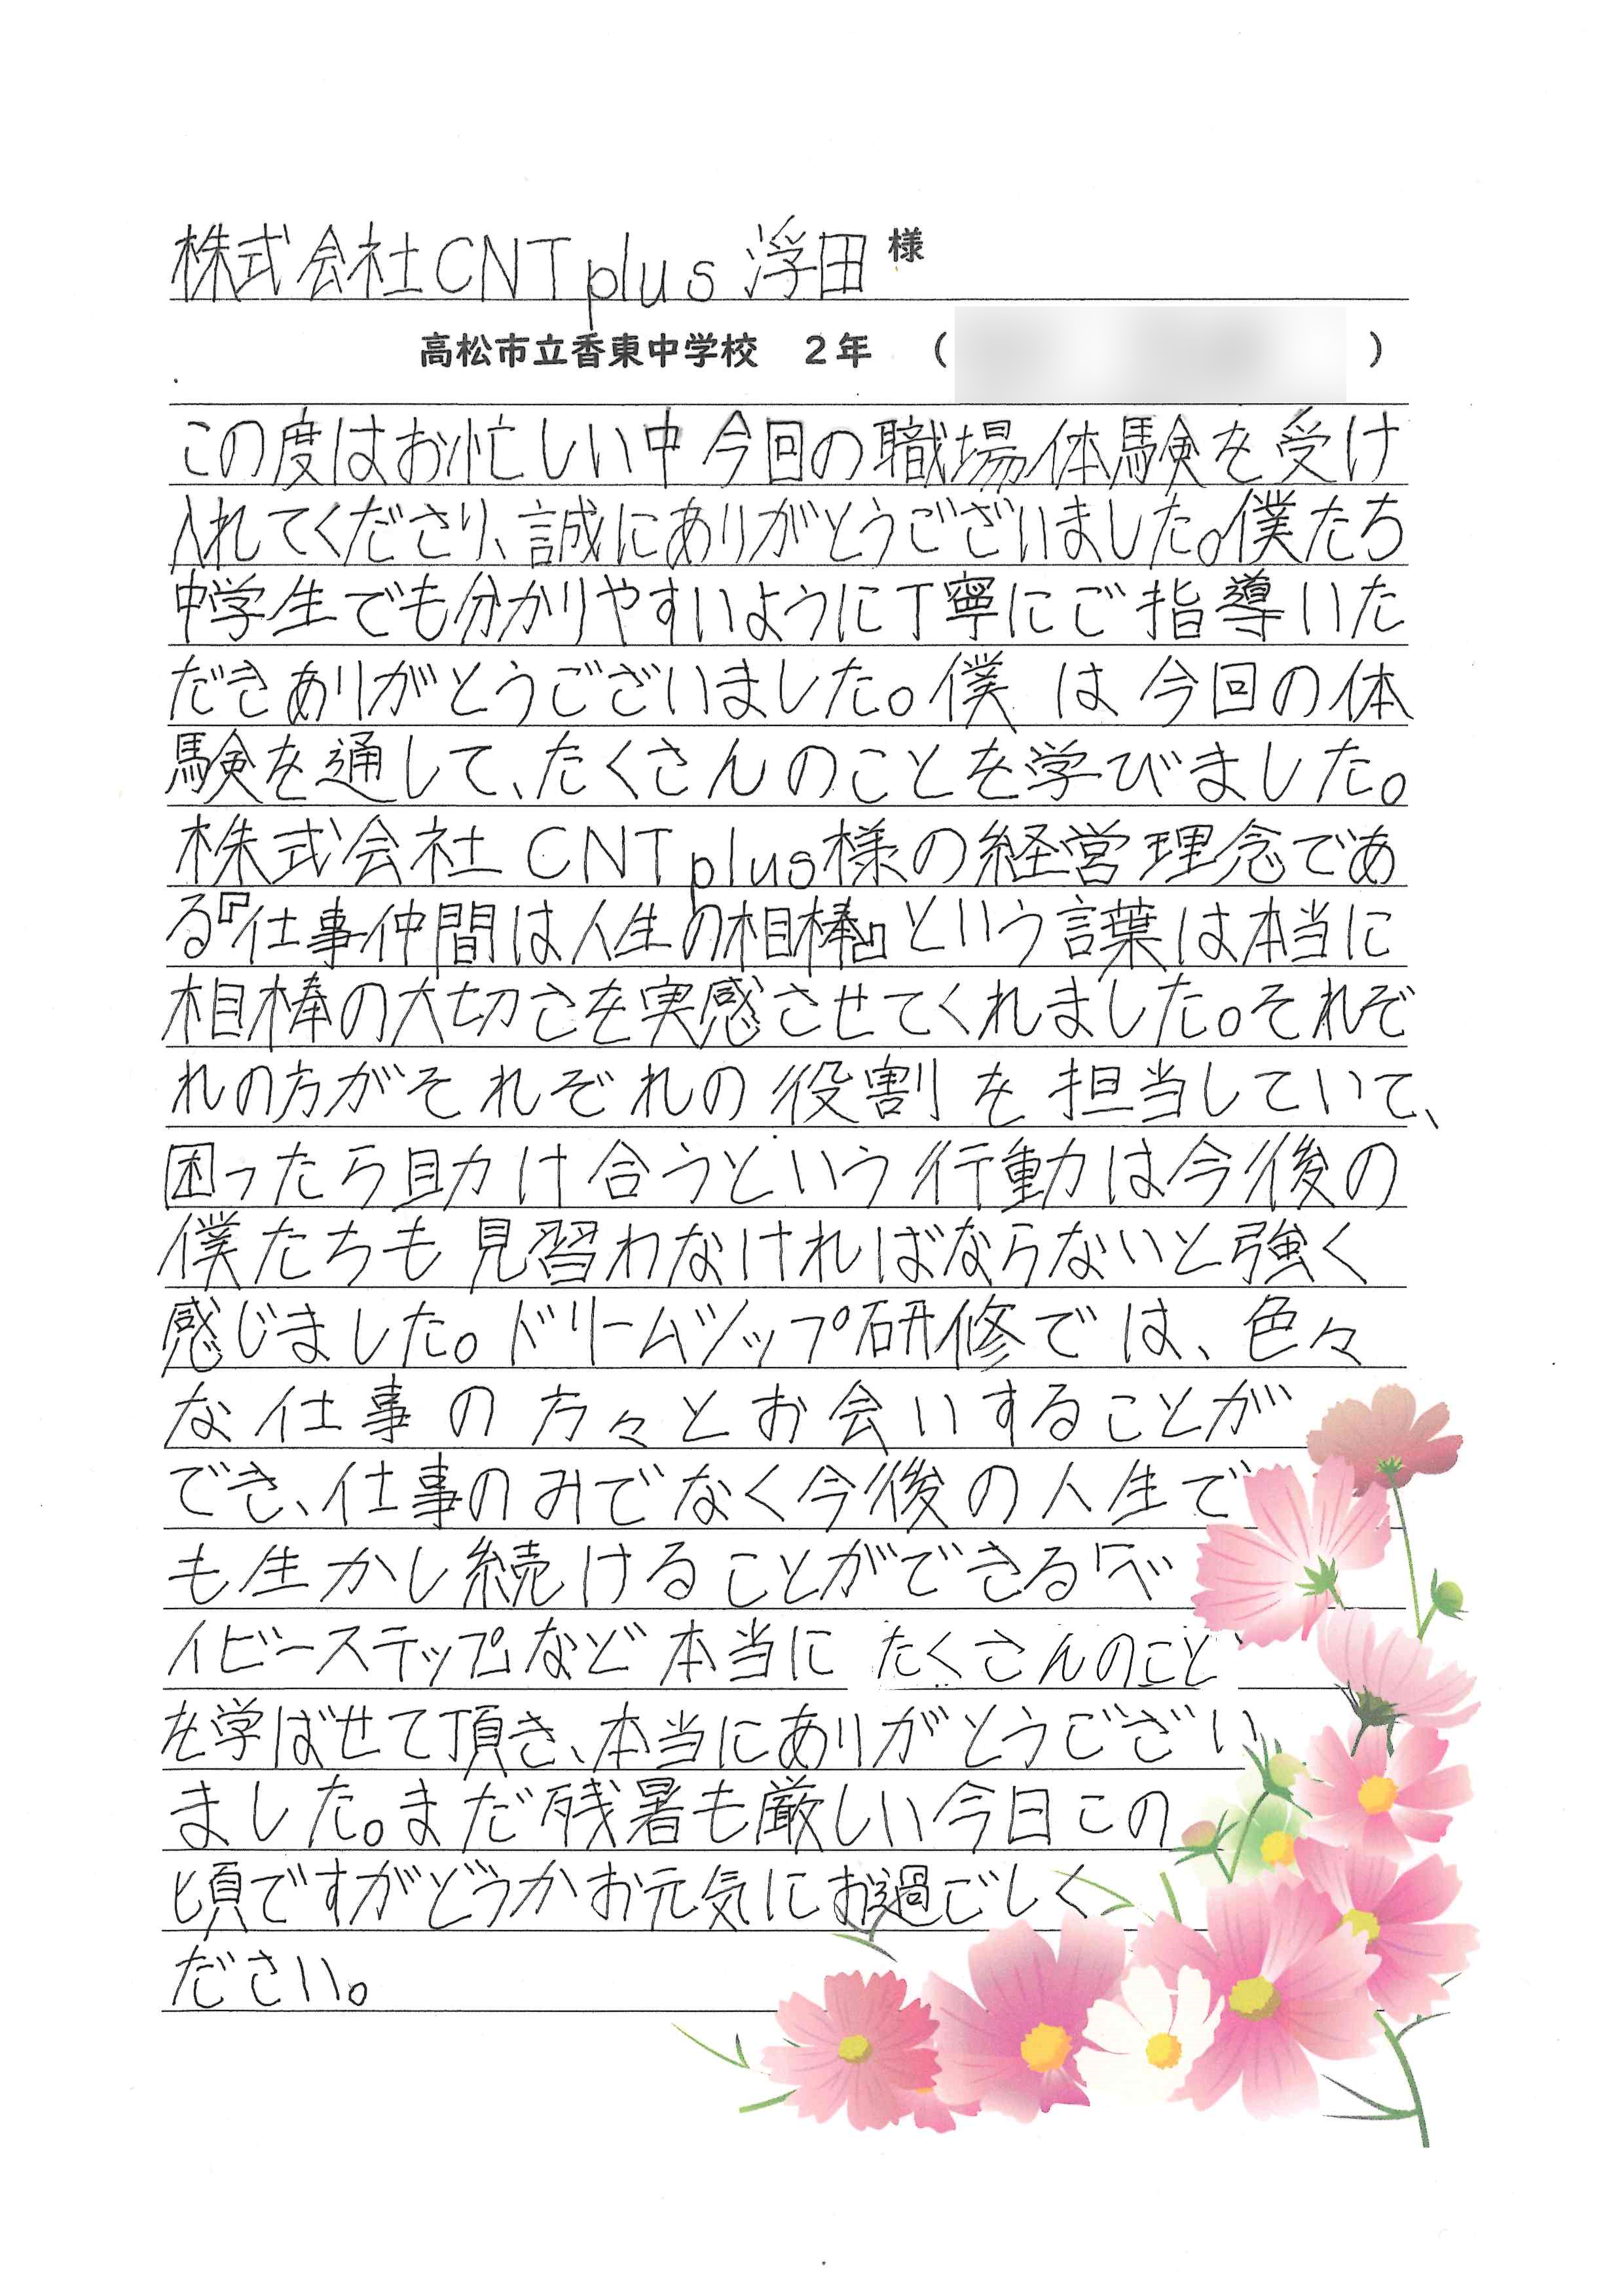 株式会社CNTplus 浮田 様
高松市立香東中学校 2年 ( )
この度はお忙しい中今回の職場体験を受け
入れてくださり、誠にありがとうございました。僕たち
中学生でも分かりやすいように丁寧にご指導いた
だきありがとうございました。僕は今回の体
験を通して、たくさんのことを学びました。
株式会社CNTplus様の経営理念であ
る『仕事仲間は人生の相棒』という言葉は本当に
相棒の大切さを実感させてくれました。それぞ
れの方がそれぞれの役割を担当していて、
困ったら助け合うという行動は今後の
僕たちも見習わなければならないと強く
感じました。ドリームマップ研修では、色々
な仕事の方々とお会いすることが
でき、仕事のみでなく今後の人生で
も生かし続けることができる「ベ
イビーステップ」など本当にたくさんのこと
を学ばせて頂き、本当にありがとうござい
ました。まだ残暑も厳しい今日この
頃ですがどうかお元気にお過ごしく
ださい。